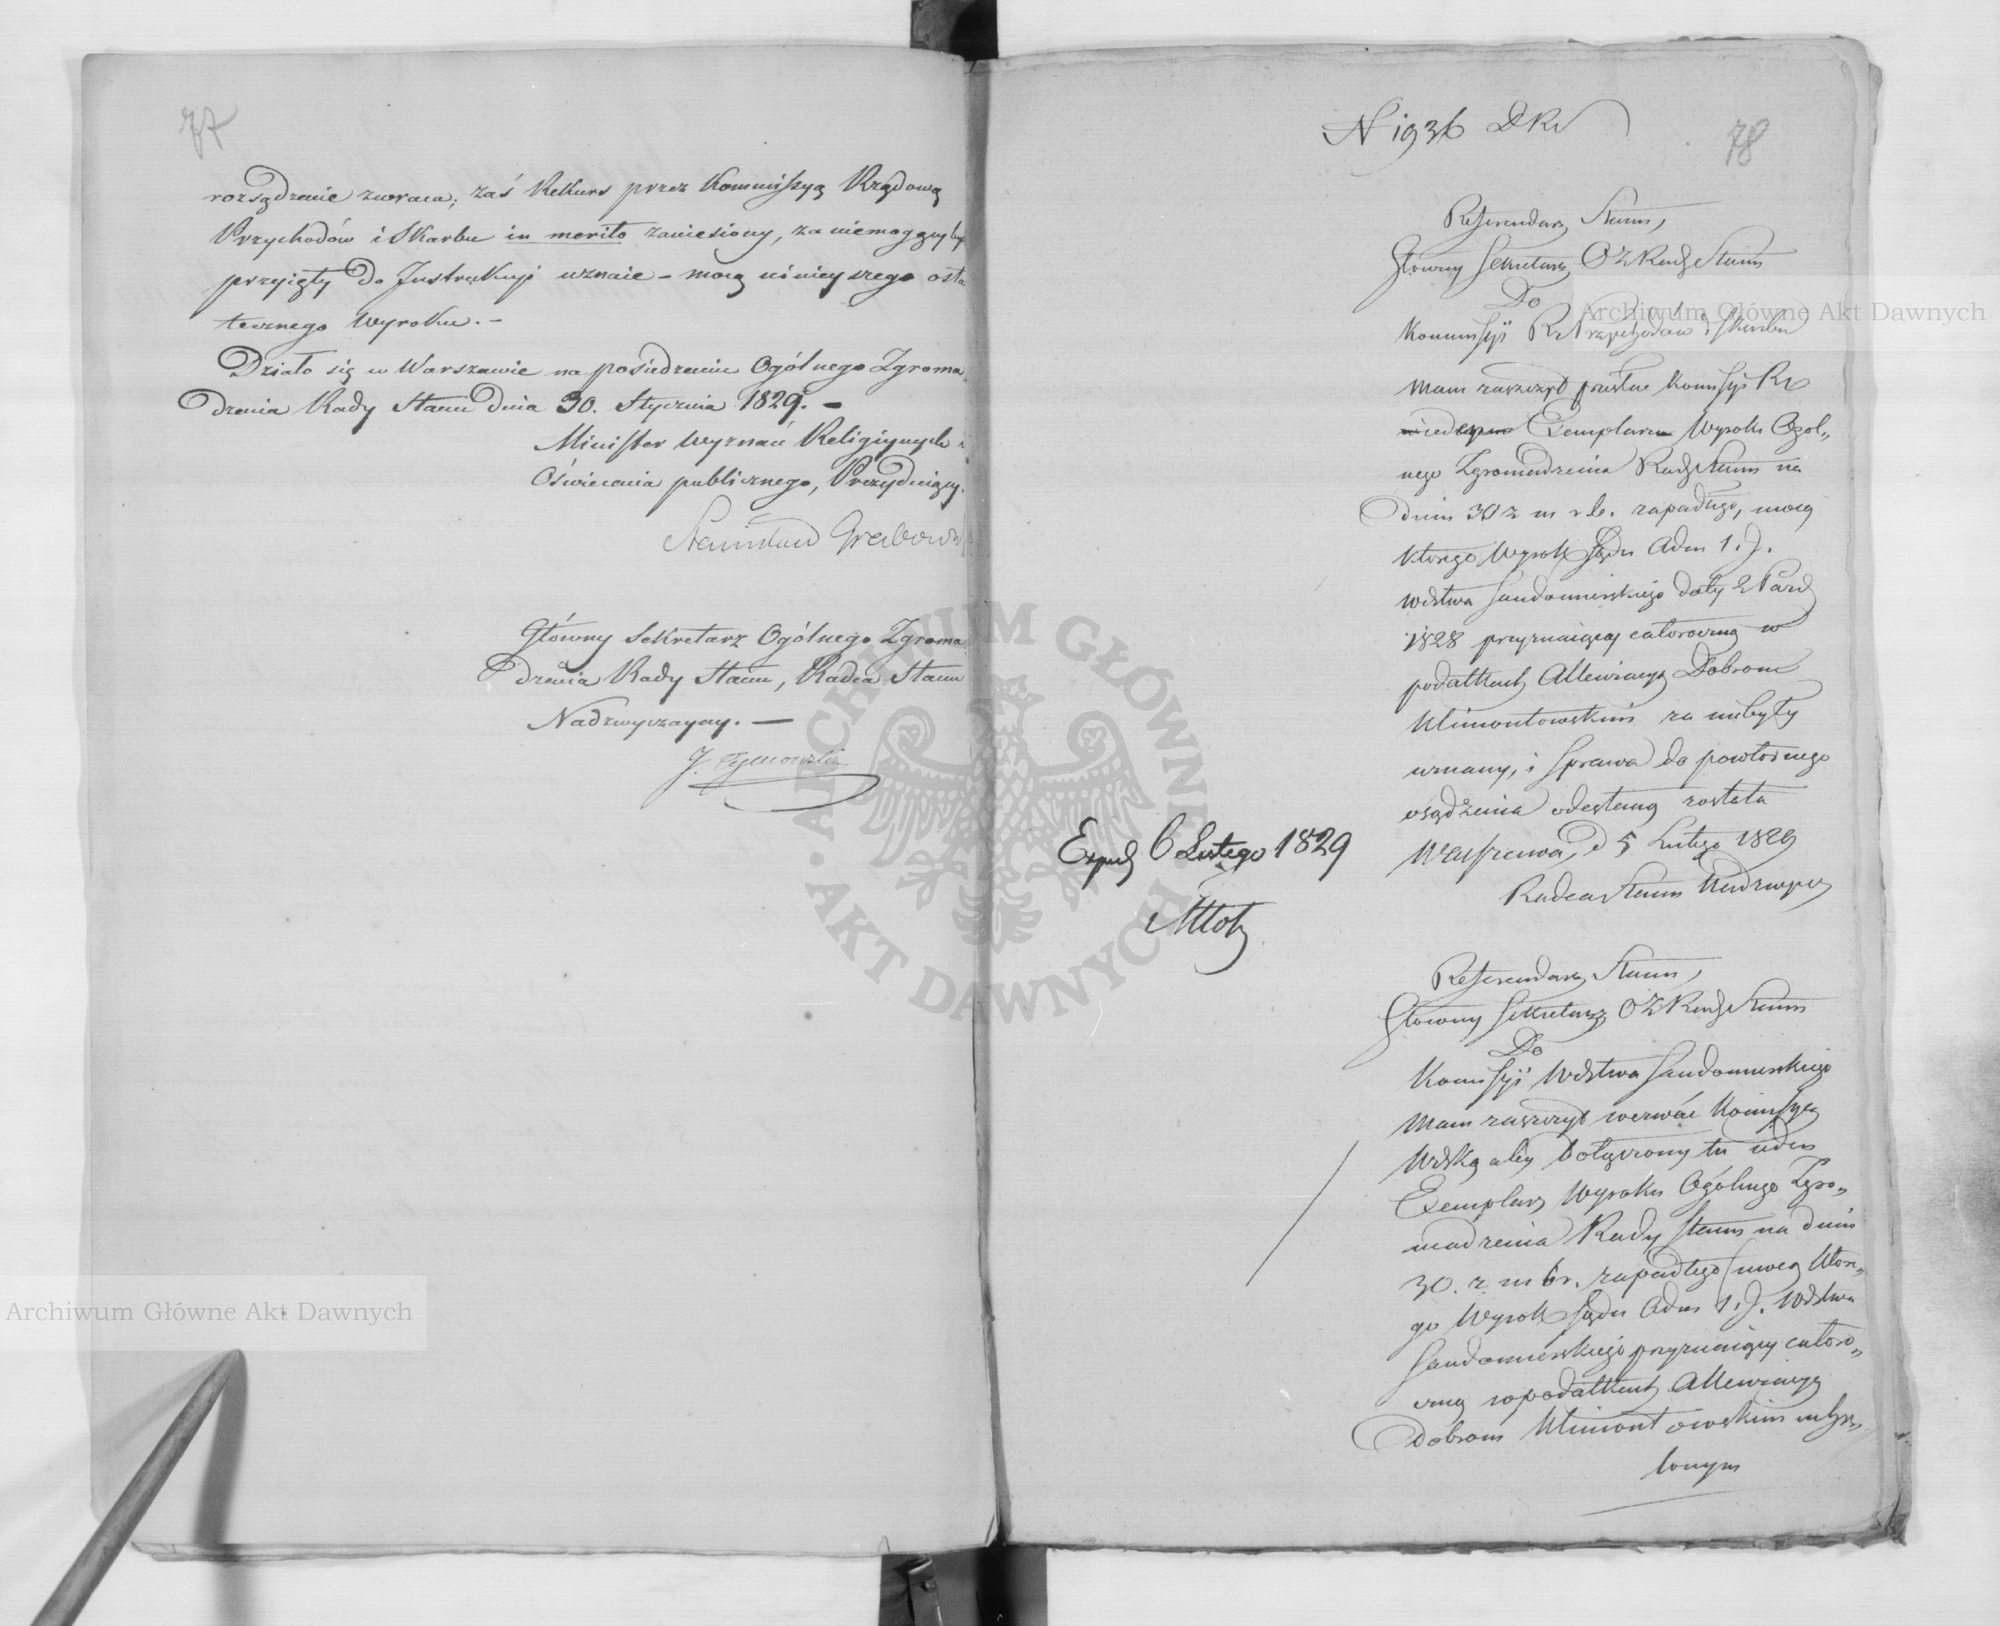 77
rozsądzenie zwraca; zaś Rekurs przez Kommissyą Rządową
Przychodów i Skarbu in merito zaniesiony, za niemogący być
przyięty do Instrukcyi uznaie – mocą ninieyszego osta
tecznego Wyroku. –
Działo się w Warszawie na posiedzeniu Ogólnego Zgroma
dzenia Rady Stanu dnia 30. Stycznia 1829. –
Minister Wyznań Religiynych i
Oświecenia publicznego, Prezyduiący.
Stanisław Grabowski
Główny Sekretarz Ogólnego Zgroma
dzenia Rady Stanu, Radca Stanu
Nadzwyczayny. –
J. Tymowski
N 1936 DKw
78
Referendarz Stanu,
Główny Sekretarz OZ Rady Stanu
Do
Kommissyi R Przychodów i Skarbu
Mam zaszczyt przesłać Komissyi Rz
Exemplarz Wyroku Ogól„
nego Zgromadzenia Rady Stanu na
dniu 30 z m r b. zapadłego, mocą
którego Wyrok Sądu Adm 1. J.
Wdztwa Sandomierskiego daty 2 Paźd
1828 przyznaiący całoroczną w
podatkach Allewiacyą Dobrom
Klimontowskim za niebyły
uznany, i sprawa do powtórnego
osądzenia odesłaną została
Warszawa, d 5 Lutego 1829
Radca Stanu Nadzwycz
Exped 6 Lutego 1829
Referendarz Stanu,
Główny Sekretarz OZ Rady Stanu
Do
Komissyi Wdztwa Sandomierskiego
Mam zaszczyt wezwać Komissyą
Wdzką aby dołączony tu ieden
Exemplarz Wyroku Ogólnego Zgro„
madzenia Rady Stanu na dniu
30. z. m br. zapadłego (mocą które„
go Wyrok Sądu Adm 1. J. Wdztwa
Sandomierskiego przyznaiący całoro„
czną w podatkach Allewiacyą
Dobrom Klimontowskim
Archiwum Główne Akt Dawnych
Archiwum Główne Akt Dawnych
ARCHIWUM GŁÓWNE · AKT DAWNYCH ·